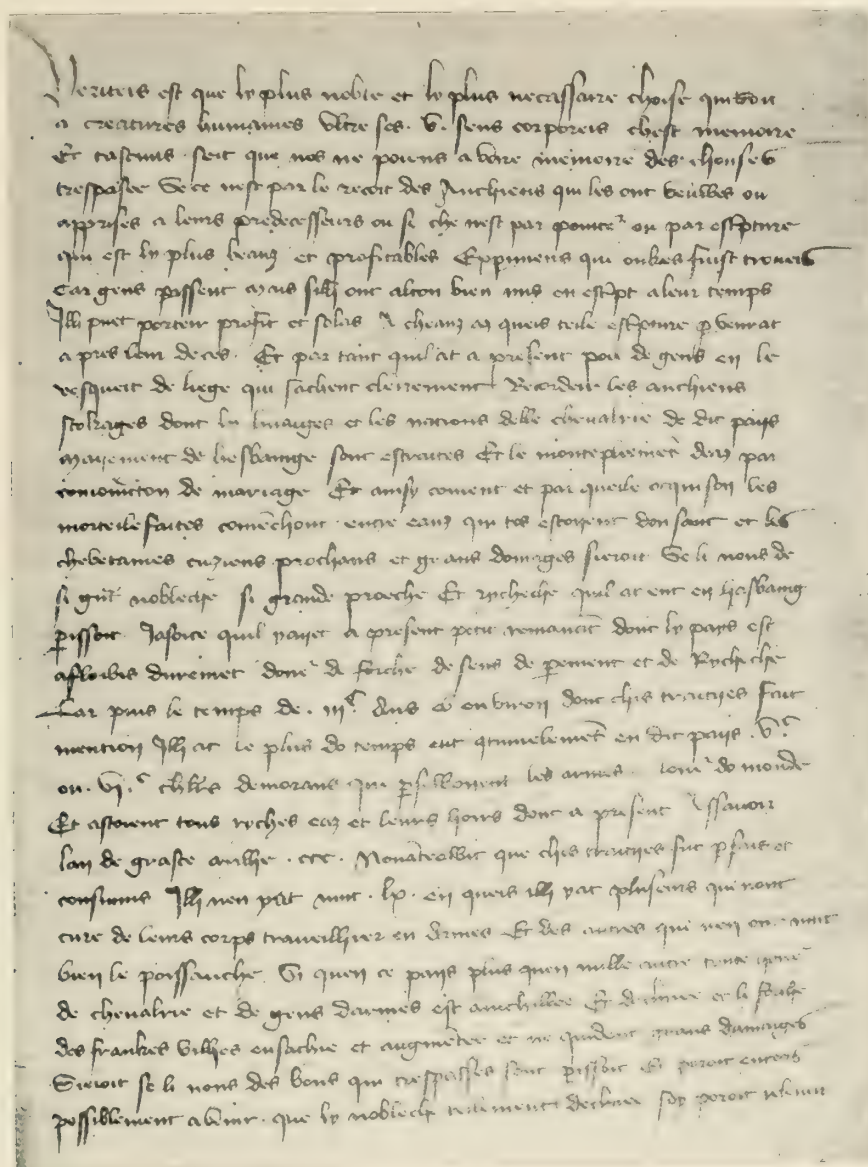 Veriteis est que ly plus noble et ly plus necessaire choise qui soit
a creatures humaines ultre ses . v . sens corporeis chest memoire
Et cascuns seit que nos ne poiens avoire memoire des chouses
trespasee Se ce nest par le recoit des Anchiens qui les ont veuwes ou
apprises a leurs predecesseurs ou si che nest par ou par escripture
qui est ly plus beauz et profitables qui onkes fuist troveis
Car gens passent mais silh ont alcon bien mis en escript a leur temps
Ilh puet porteir profit et solas A cheauz az queis teile escripture p venrat
apres leur deces . Et par tant quil at a present pou de gens en le
vesqueit de liege qui sachent clerement Recordeir les anchiens
dont ly linaiges et les nations delle chevalrie de dit pays
de hesbainge sont estraites Et le montepliemet deaz par
de mariage Et ainsy coment et par queile oquison les
morteile faites comechont entre eauz qui tos estoyent don sanc et les
cuziens prochans et grans domages sieroit Se li nons de
si gnt nobleche si grande proeche Et rycheche quil at eut en hasbaing
pissoit Jasoice quil yayet a present petit remanat dont ly pays est
afloibis durement de forche de sens de et de Rycheche
Car puis le temps de . iii c Ans ou environ dont chis traities fait
mention Ilh at le plus do temps eut en dit pays . v c
ou . vi . c chlrs demorans qui les armes . do monde
Et astoient tous ryches eaz et leurs hoirs dont a present Assavoir
lan de grasce milhe . ccc . que chis traities fut p fais et
Ilh nen yat mie . lx . en queis ilh yat pluseurs qui nont
cure de leurs corps traveilhier en Armes Et des autres qui nen ont mie
bien le poissanche Si quen ce pays plus quen nulle autre
de chevalrie et de gens darmes est anichillee Et et li forche
des frankes vilhes ensachie et augmetee et ne grans damaiges
Sieroit se li nons des bons qui trespasses sont pissoit Et poroit encors
possiblement avenir . que ly nobleche poroit